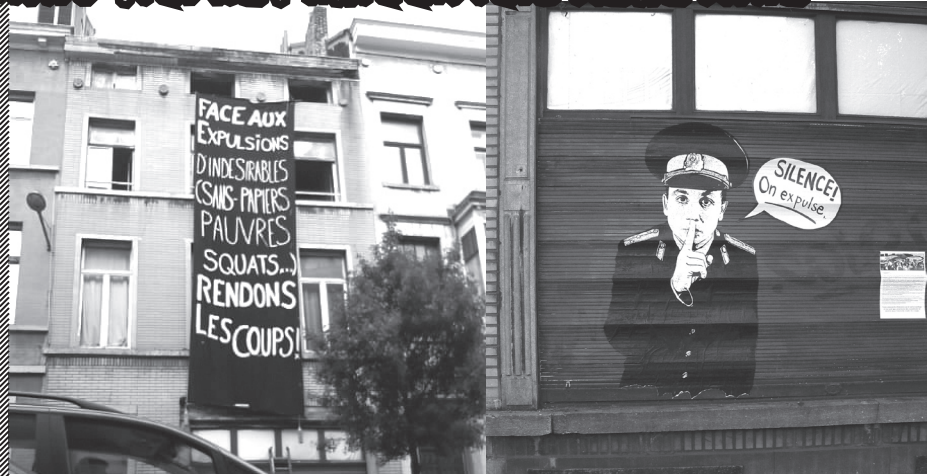 FACE AUX
EXPULSIONS
D'INDESIRABLES
(SANS-PAPIERS
PAUVRES
SQUATS...)
RENDONS
LES COUPS!
SILENCE!
On expulse.